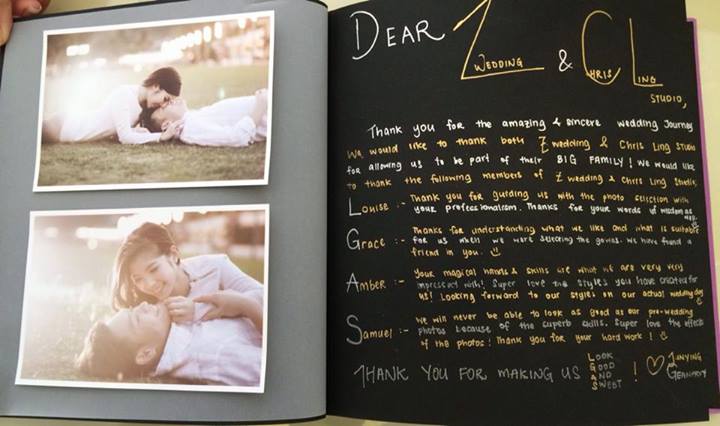 DEAR Z WEDDING & CHRIS LING
STUDIO,
Thank you for the amazing & sincere wedding journey
We would like to thank both Z wedding & Chris Ling Studio
for allowing us to be part of their BIG FAMILY! We would like
to thank the following members of Z wedding & Chris Ling Studio;
Louise :- Thank you for guiding us with the photo selection with
your professionalism. Thanks for your words of wisdom as
well.
Grace :- Thanks for understanding what we like and what is suitable
for us when we were selecting the gowns. We have found a
friend in you.
Amber :- Your magical hands & skills are what we are very very
impressed with! Super love the styles you have created for
us! Looking forward to our styles on our actual wedding day
Samuel :- We will never be able to look as good as our pre-wedding
photos because of the superb skills. Super love the effects
of the photos! Thank you for your hard work!
THANK YOU FOR MAKING US LOOK GOOD AND SWEET !